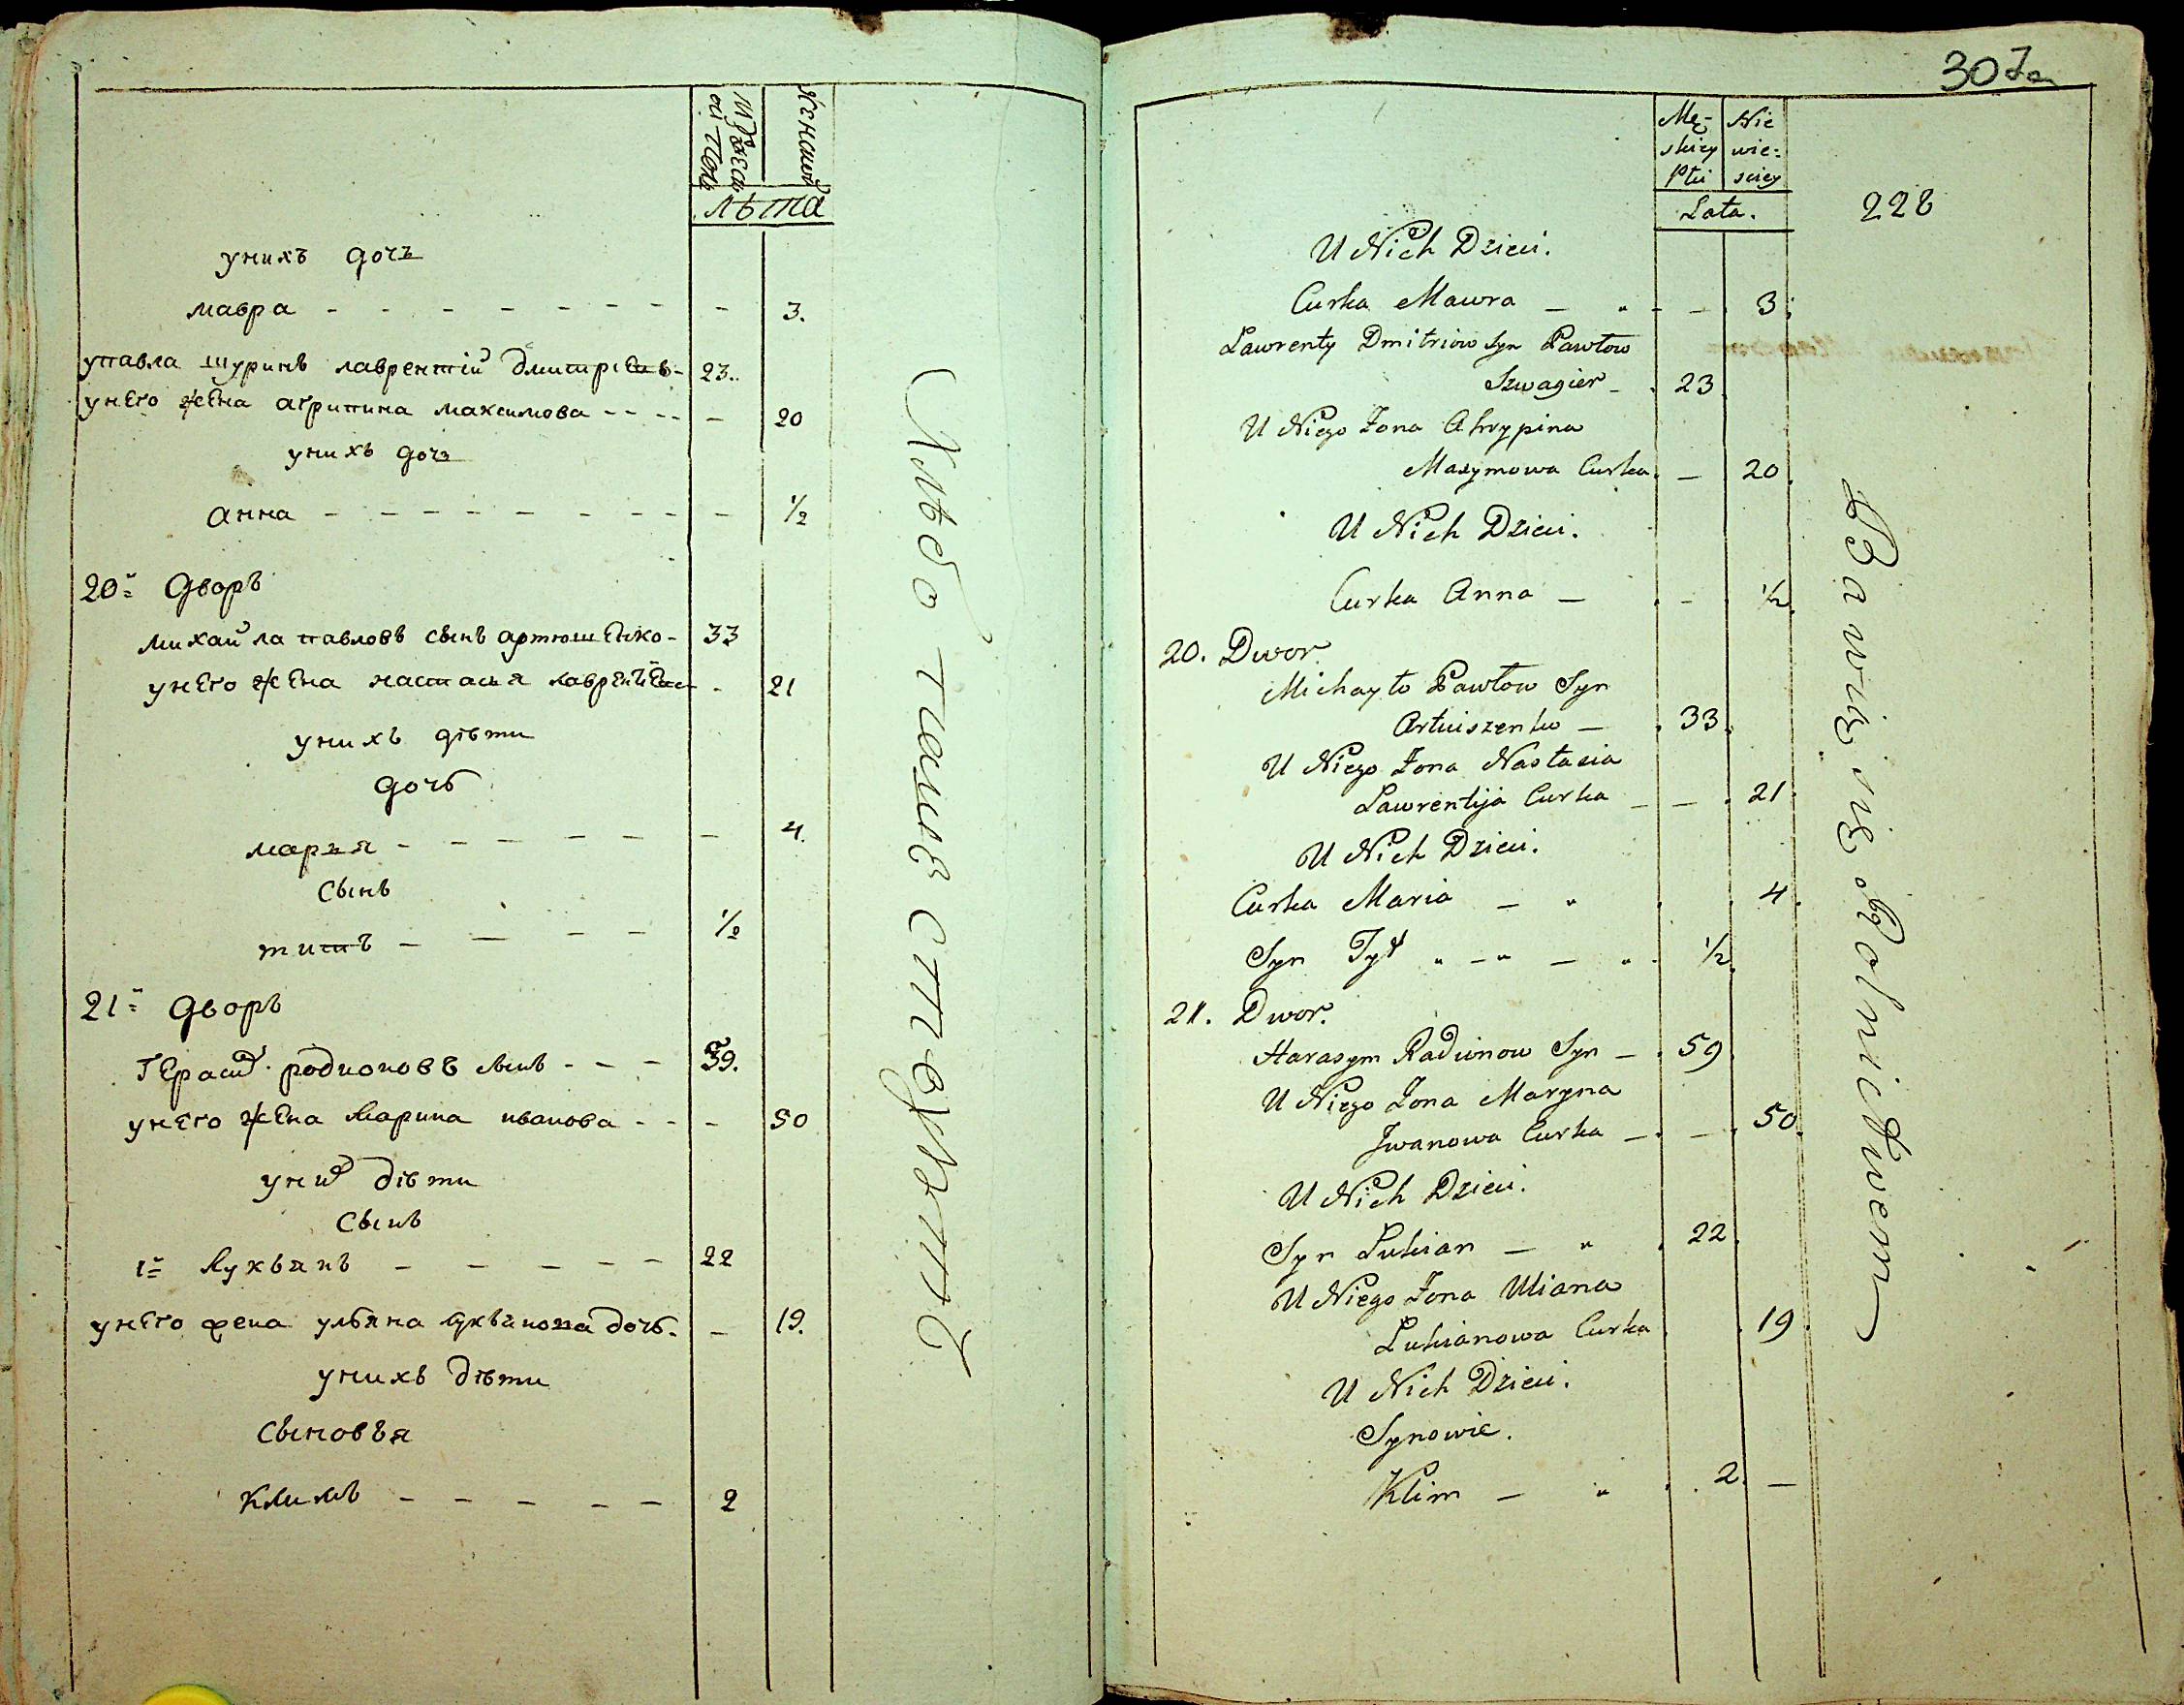 Мужеск
ой полъ
Женской
лѣта
унихъ дочь
мавра - - - - - - - - 3.
упавла шуринъ лаврентій дмитріевъ - 23.
унего жена агрипина максимова - - - - - 20
унихъ дочь
анна - - - - - - - - 1/2
20й дворъ
михайла павловъ сынъ артюшенко - 33
унего жена настасья - 21
унихъ дѣти
дочь
марья - - - - - - 4.
сынъ
титъ - - - - 1/2
21й дворъ
Герасим родионовъ сынъ - - - 59.
унего жена Марина иванова - - - 50
уних дѣти
сынъ
1й Лукьянъ - - - - - 22
унего жена ульяна лукьянова дочь. - 19.
унихъ дѣти
сыновья
климъ - - - - - 2
Хлѣбопашествуютъ
307
Mę- Nie
skiey wie-
Płci sciey
Lata.
228
U Nich Dzieci.
Curka Mawra - - - 3.
Lawrenty Dmitriow Syn Pawłow
Szwagier - 23
U Niego Żona Ahrypina
Maxymowa Curka - 20
U Nich Dzieci.
Curka Anna - - 1/2
20. Dwor.
Michayło Pawłow Syn
Artuiszenko - 33
U Niego Żona Nastasia
Lawrentija Curka - - 21
U Nich Dzieci.
Curka Maria - 4.
Syn Tyt - - 1/2
21. Dwor.
Harasym Radiwnow Syn - 59
U Niego Żona Maryna
Jwanowa Curka - - 50.
U Nich Dzieci.
Syn Lukian - 22
U Niego Żona Uliana
Lukianowa Curka 19
U Nich Dzieci.
Synowie.
Klim - 2. -
Bawią się Rolnictwem